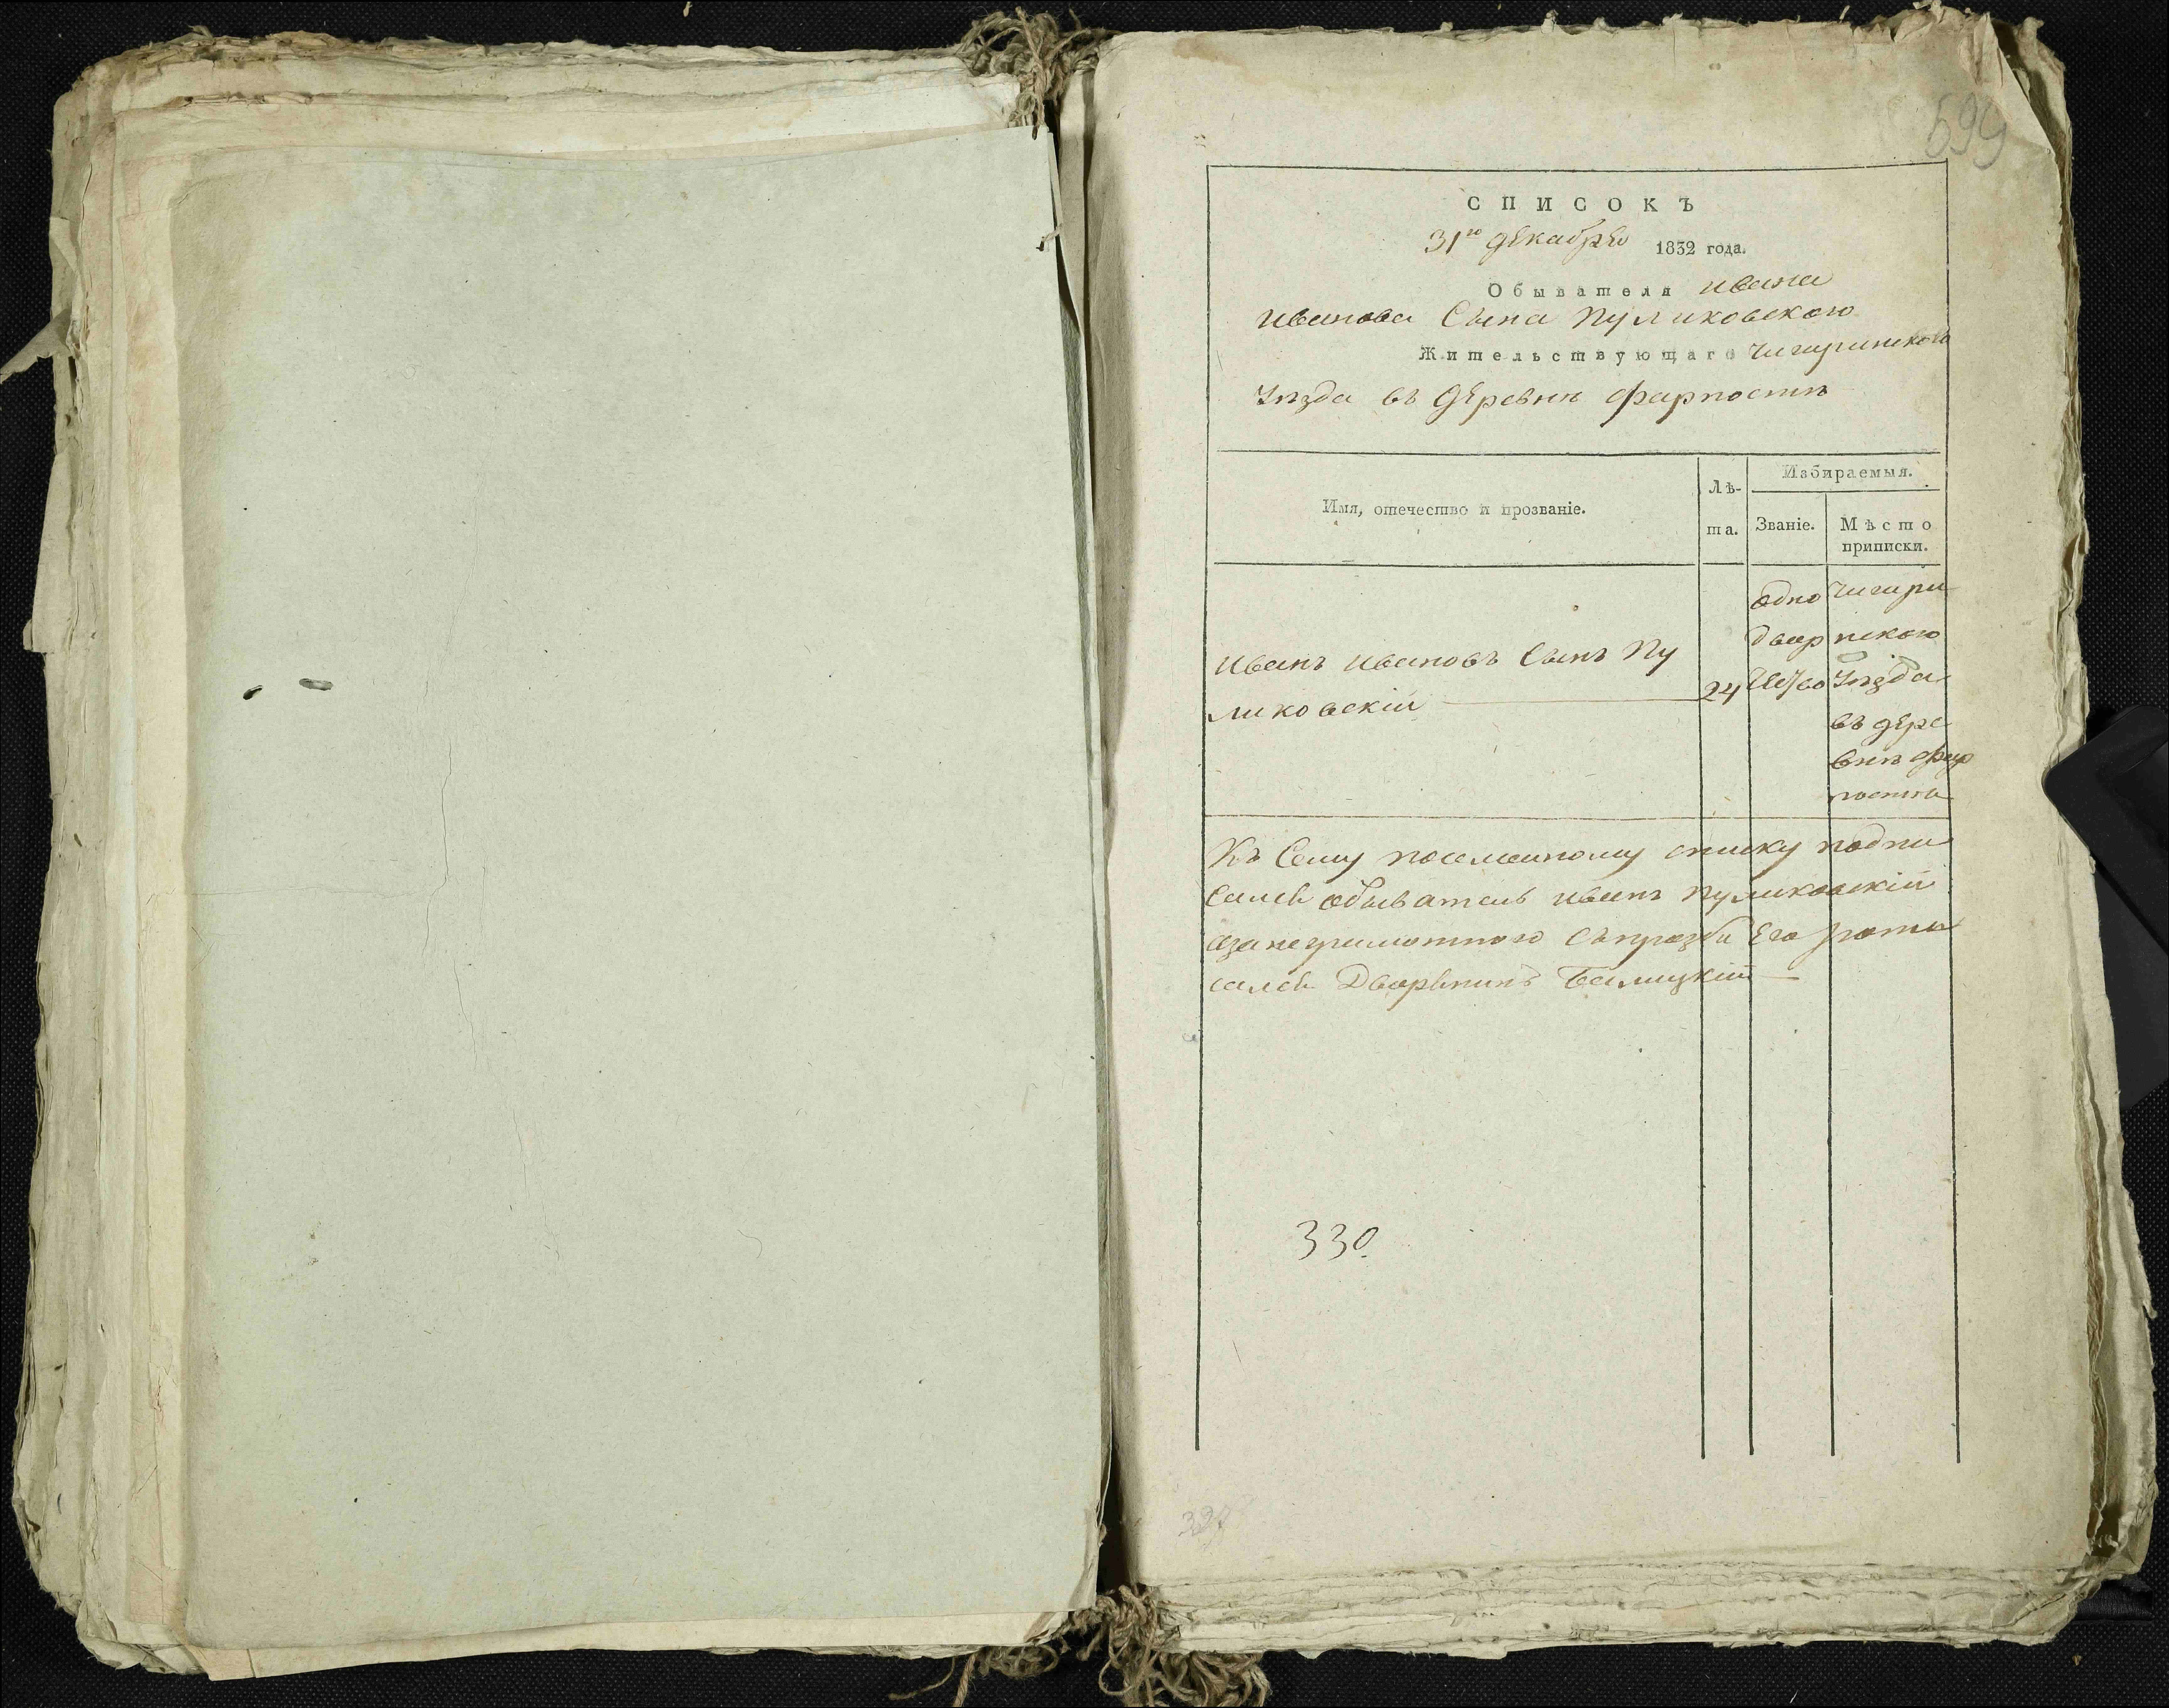 599
СПИСОКЪ
31го декабря 1832 года.
Обывателя Ивана
Иванова Сына Пуликовского
Жительствующаго Чигиринского
Уѣзда въ деревнѣ Фарпостѣ
Имя, отечество и прозваніе.
Лѣ-
та.
Избираемыя.
Званіе.
Мѣсто
приписки.
Иванъ Ивановъ Сынъ Пу
ликовскій
24
Одно
двор
Чигири
нского
Уѣзда
въ дере
внѣ Фар
постѣ
Къ Сему посемейному списку подпи
салсь обыватель Иванъ Пуликовскій
азанеграмотного Съпрозби Его
салсь Дворянинъ Балицкій
330.